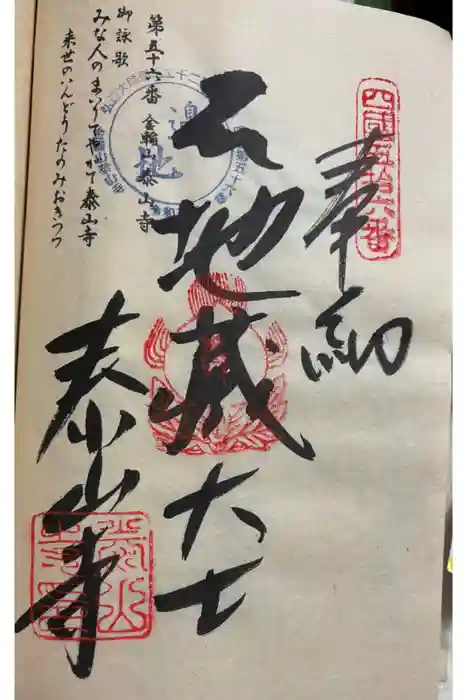 四国五拾六番
奉納
地蔵大士
泰山寺
第五十六番 金輪山 泰山寺
御詠歌
みな人のまいりてやがて泰山寺
来世のいんどうたのみおきつつ